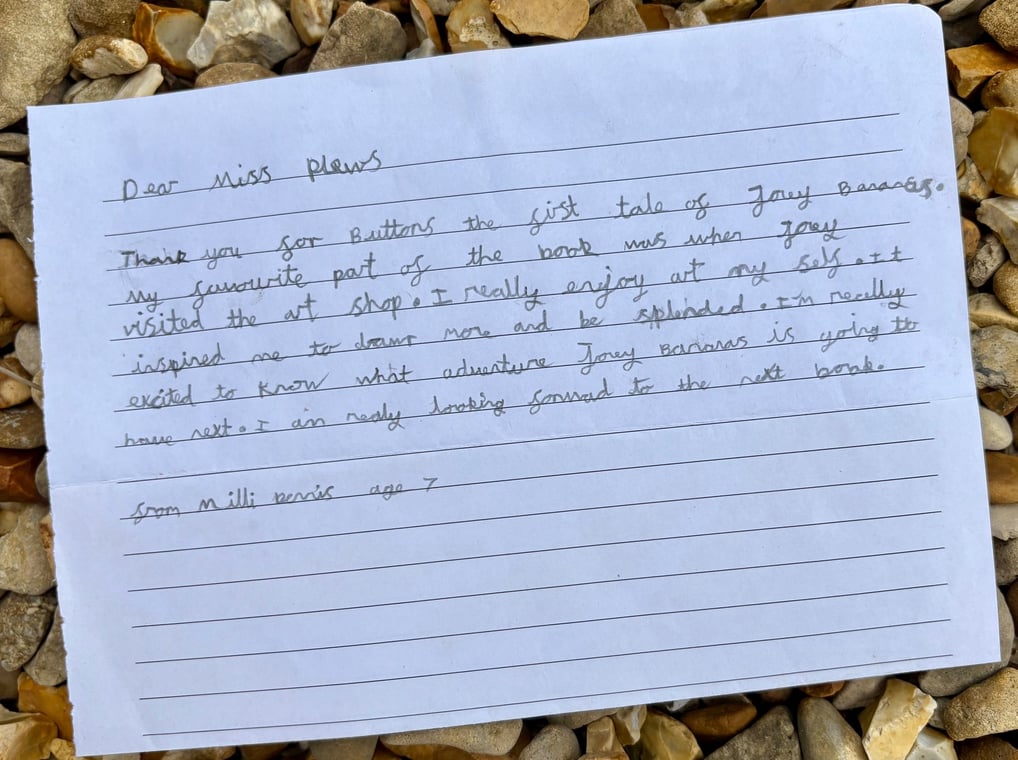 Dear Miss Plews
Thank you for Buttons the fist tale of Joey Bananas.
My favourite part of the book was when Joey
visited the art shop. I really enjoy art my self. It
inspired me to draw more and be splended. I'm really
excited to know what adventure Joey Bananas is going to
have next. I am realy looking forward to the next book.
from Milli age 7